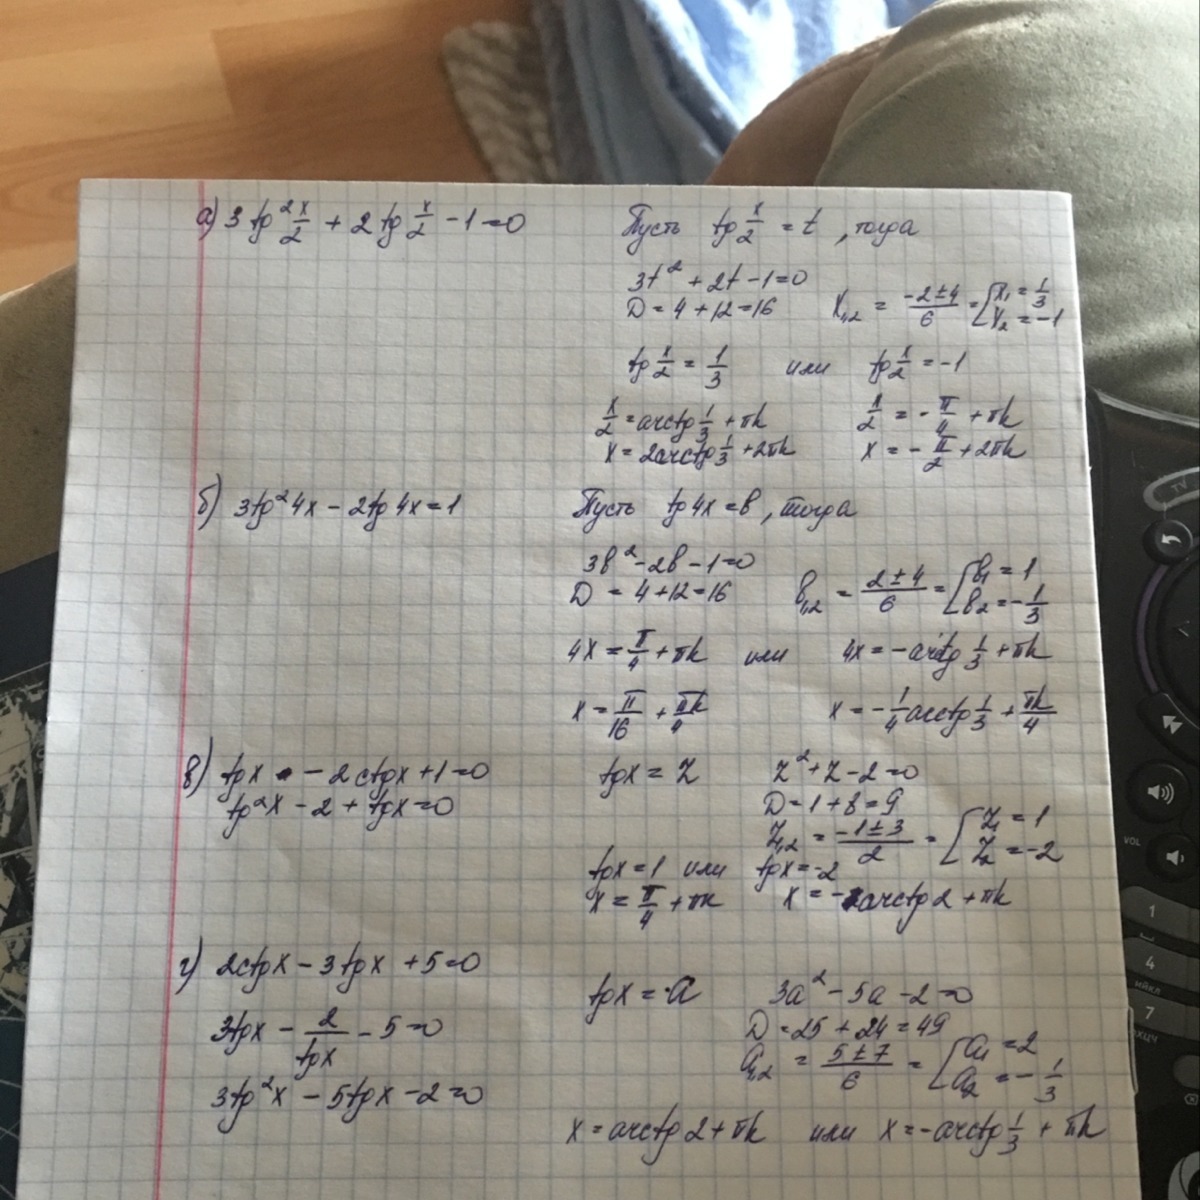 а) 3tg²x/2 + 2tg x/2 - 1 = 0
Пусть tg x/2 = t, тогда
3t² + 2t - 1 = 0
D = 4 + 12 = 16 X₁,₂ = (-2 ± 4)/6 = [X₁ = 1/3
X₂ = -1
tg x/2 = 1/3 или tg x/2 = -1
x/2 = arctg 1/3 + πk x/2 = -π/4 + πk
x = 2arctg 1/3 + 2πk x = -π/2 + 2πk
б) 3tg²4x - 2tg4x = 1
Пусть tg4x = b, тогда
3b² - 2b - 1 = 0
D = 4 + 12 = 16 b₁,₂ = (2 ± 4)/6 = [b₁ = 1
b₂ = -1/3
4x = π/4 + πk или 4x = -arctg 1/3 + πk
x = π/16 + πk/4 x = -1/4 arctg 1/3 + πk/4
в) tgx - 2ctgx + 1 = 0
tg²x - 2 + tgx = 0
tgx = z z² + z - 2 = 0
D = 1 + 8 = 9
z₁,₂ = (-1 ± 3)/2 = [z₁ = 1
z₂ = -2
tgx = 1 или tgx = -2
x = π/4 + πk x = -arctg2 + πk
г) 2ctgx - 3tgx + 5 = 0
3tgx - 2/tgx - 5 = 0
3tg²x - 5tgx - 2 = 0
tgx = a 3a² - 5a - 2 = 0
D = 25 + 24 = 49
a₁,₂ = (5 ± 7)/6 = [a₁ = 2
a₂ = -1/3
x = arctg2 + πk или x = -arctg 1/3 + πk
TV
VOL
1
4
ийкл
7